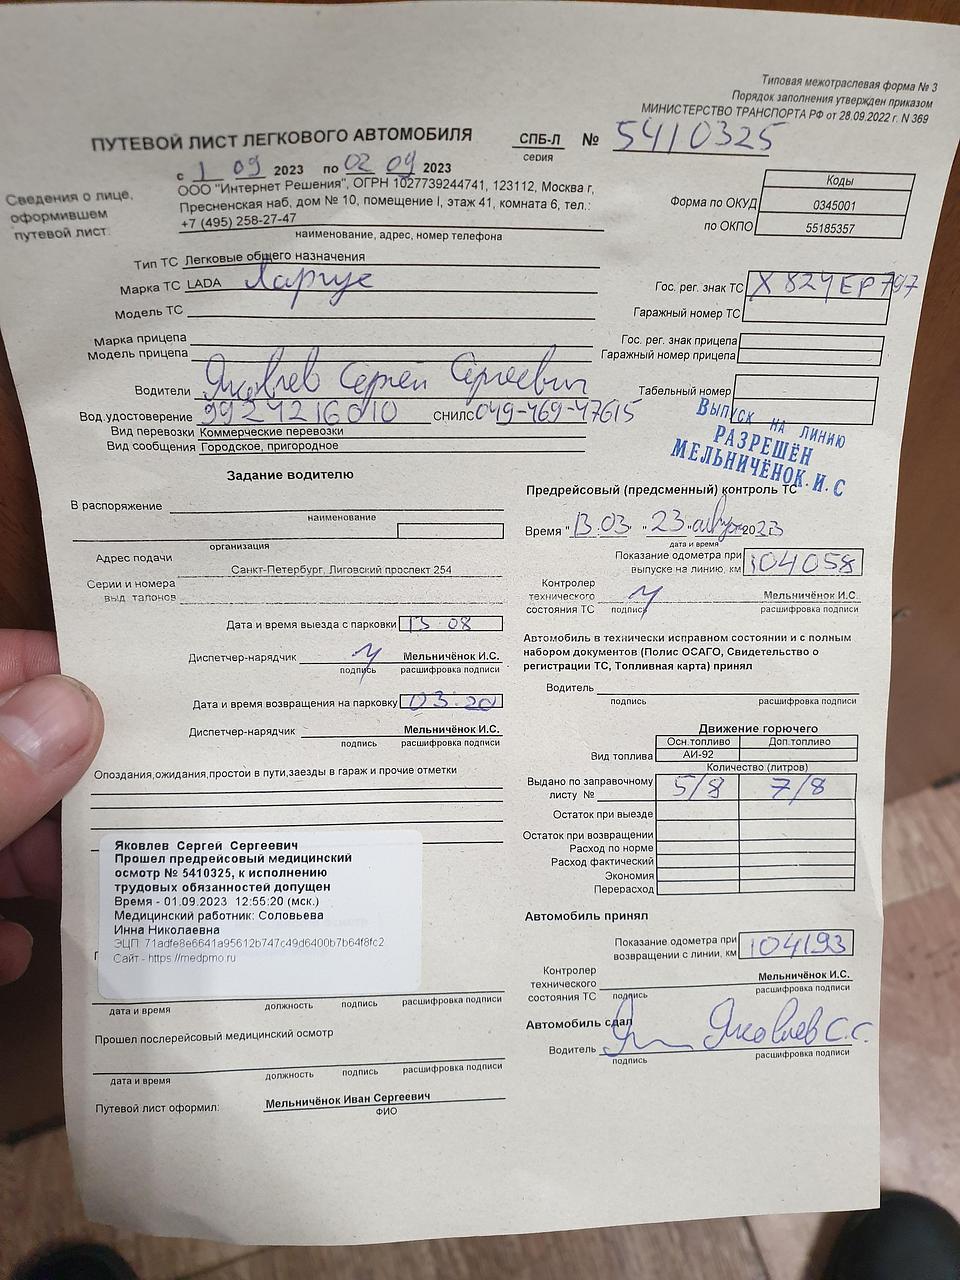 Типовая межотраслевая форма № 3
Порядок заполнения утвержден приказом
МИНИСТЕРСТВО ТРАНСПОРТА РФ от 28.09.2022 г. N 369
ПУТЕВОЙ ЛИСТ ЛЕГКОВОГО АВТОМОБИЛЯ СПБ-Л № 5410325
серия
с 1 09 2023 по 02 09 2023
Сведения о лице, оформившем путевой лист:
ООО "Интернет Решения", ОГРН 1027739244741, 123112, Москва г,
Пресненская наб, дом № 10, помещение I, этаж 41, комната 6, тел.:
+7 (495) 258-27-47
наименование, адрес, номер телефона
Коды
Форма по ОКУД 0345001
по ОКПО 55185357
Тип ТС Легковые общего назначения
Марка ТС LADA Ларгус
Гос. рег. знак ТС Х 824 ЕР 797
Модель ТС
Гаражный номер ТС
Марка прицепа
Гос. рег. знак прицепа
Модель прицепа
Гаражный номер прицепа
Водители Яковлев Сергей Сергеевич
Табельный номер
Вод.удостоверение 9924216010 СНИЛС 049-469-47615
Вид перевозки Коммерческие перевозки
Вид сообщения Городское, пригородное
ВЫПУСК НА ЛИНИЮ
РАЗРЕШЁН
МЕЛЬНИЧЁНОК.И.С
Задание водителю
В распоряжение
наименование
организация
Адрес подачи
Санкт-Петербург, Лиговский проспект 254
Серии и номера
выд. талонов
Дата и время выезда с парковки 13 08
Диспетчер-нарядчик Мельничёнок И.С.
подпись расшифровка подписи
Дата и время возвращения на парковку 03:20
Диспетчер-нарядчик Мельничёнок И.С.
подпись расшифровка подписи
Опоздания,ожидания,простои в пути,заезды в гараж и прочие отметки
Яковлев Сергей Сергеевич
Прошел предрейсовый медицинский
осмотр № 5410325, к исполнению
трудовых обязанностей допущен
Время - 01.09.2023 12:55:20 (мск.)
Медицинский работник: Соловьева
Инна Николаевна
ЭЦП: 71adfe8e6641a95612b747c49d6400b7b64f8fc2
Сайт - https://medpmo.ru
дата и время должность подпись расшифровка подписи
Прошел послерейсовый медицинский осмотр
дата и время должность подпись расшифровка подписи
Путевой лист оформил: Мельничёнок Иван Сергеевич
ФИО
Предрейсовый (предсменный) контроль ТС
Время "13.03 " 23 " август 2023
дата и время
Показание одометра при
выпуске на линию, км 104058
Контролер
технического
состояния ТС
Мельничёнок И.С.
подпись расшифровка подписи
Автомобиль в технически исправном состоянии и с полным
набором документов (Полис ОСАГО, Свидетельство о
регистрации ТС, Топливная карта) принял
Водитель
подпись расшифровка подписи
Движение горючего
Осн.топливо Доп.топливо
Вид топлива АИ-92
Количество (литров)
Выдано по заправочному
листу № 5/8 7/8
Остаток при выезде
Остаток при возвращении
Расход по норме
Расход фактический
Экономия
Перерасход
Автомобиль принял
Показание одометра при
возвращении с линии, км 104193
Контролер
технического
состояния ТС
Мельничёнок И.С.
подпись расшифровка подписи
Автомобиль сдал
Водитель Яковлев С.С.
подпись расшифровка подписи